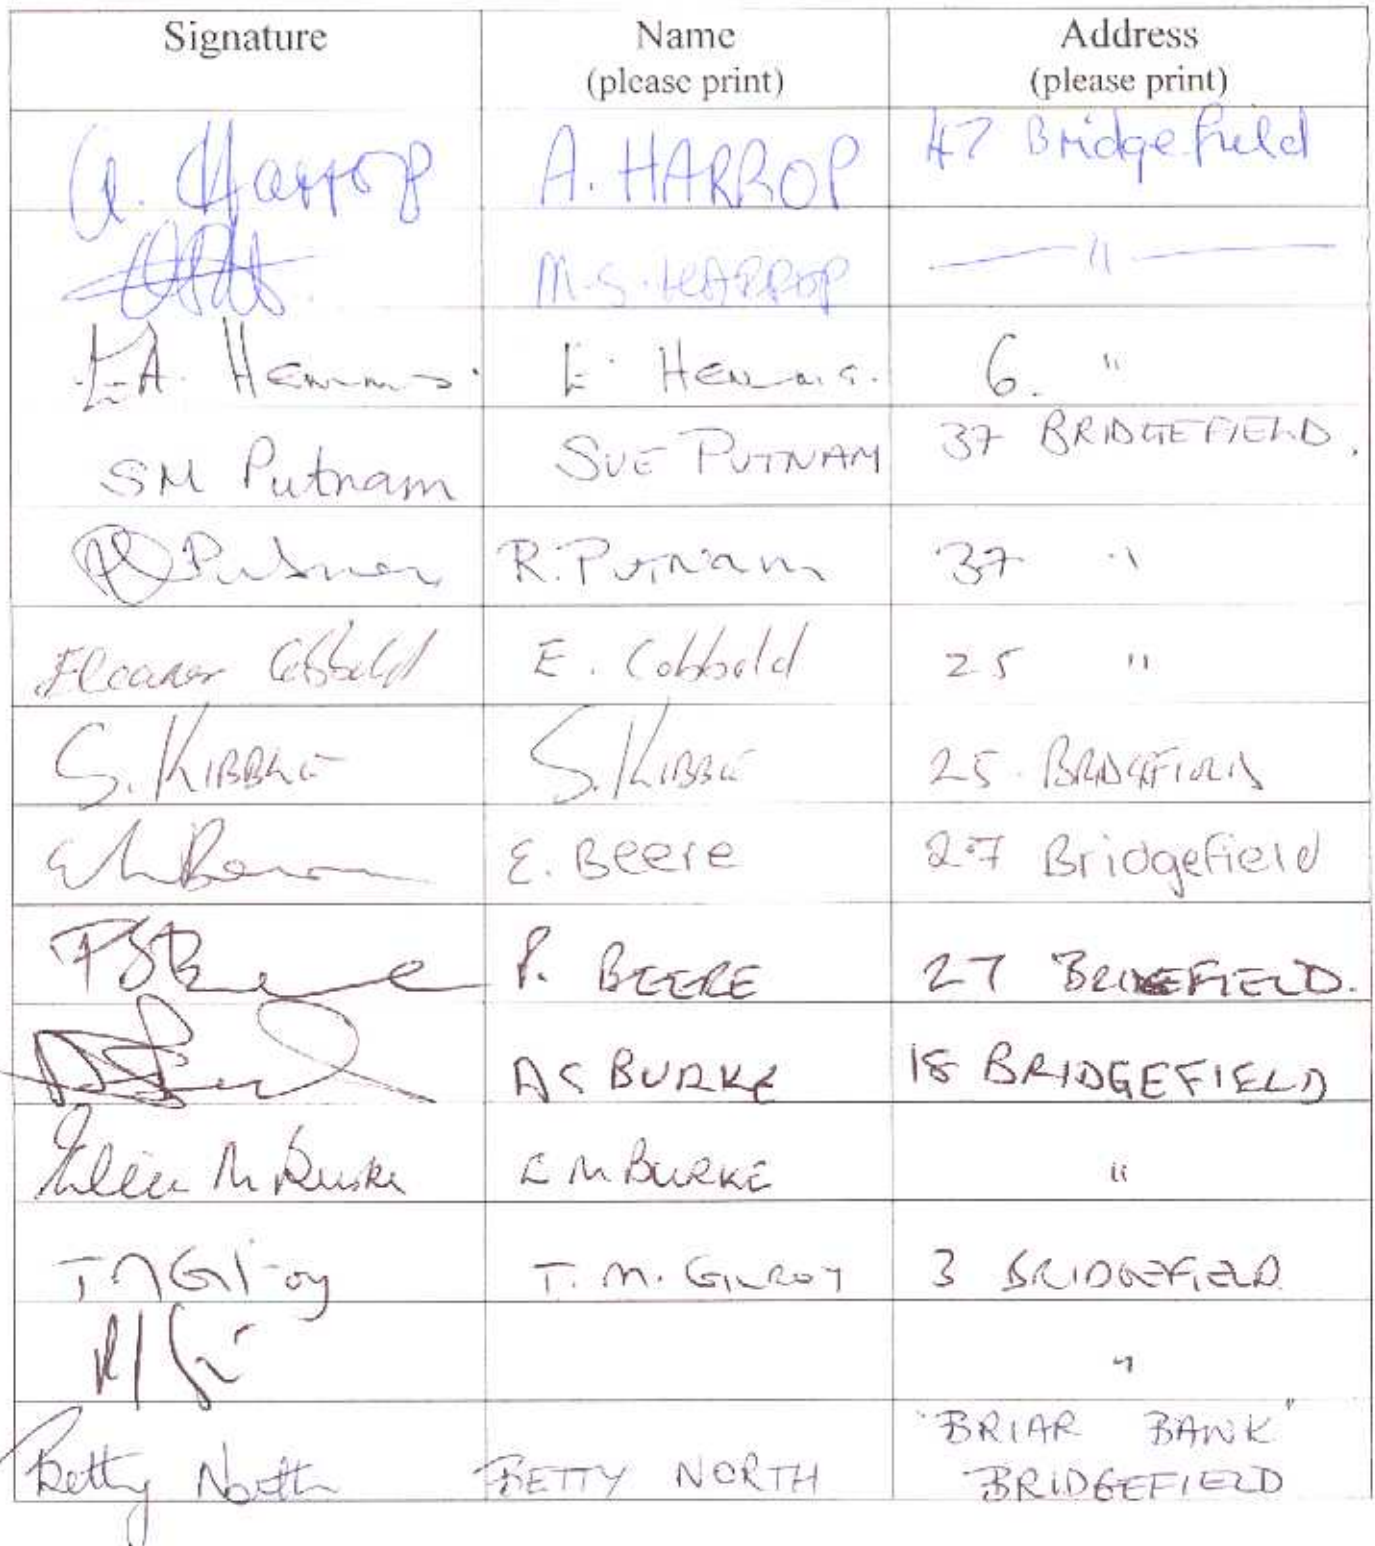 Signature Name Address
(please print) (please print)
a. Harrop A. HARROP 47 Bridgefield
M.S. HARROP — " —
E.A. Hemms. E. Hemms. 6. "
SM Putnam SUE PUTNAM 37 BRIDGEFIELD.
Putnam R. PUTNAM 37 "
Eleanor Cobbold E. Cobbold 25 "
S. KIBBLE S. KIBBLE 25 BRIDGEFIELD
E. Beere 27 Bridgefield
P. BEERE 27 BRIDGEFIELD.
A S BURKE 18 BRIDGEFIELD
Eileen M Burke E M BURKE "
T M Gilroy T. M. GILROY 3 BRIDGEFIELD
"
Betty North BETTY NORTH "BRIAR BANK"
BRIDGEFIELD